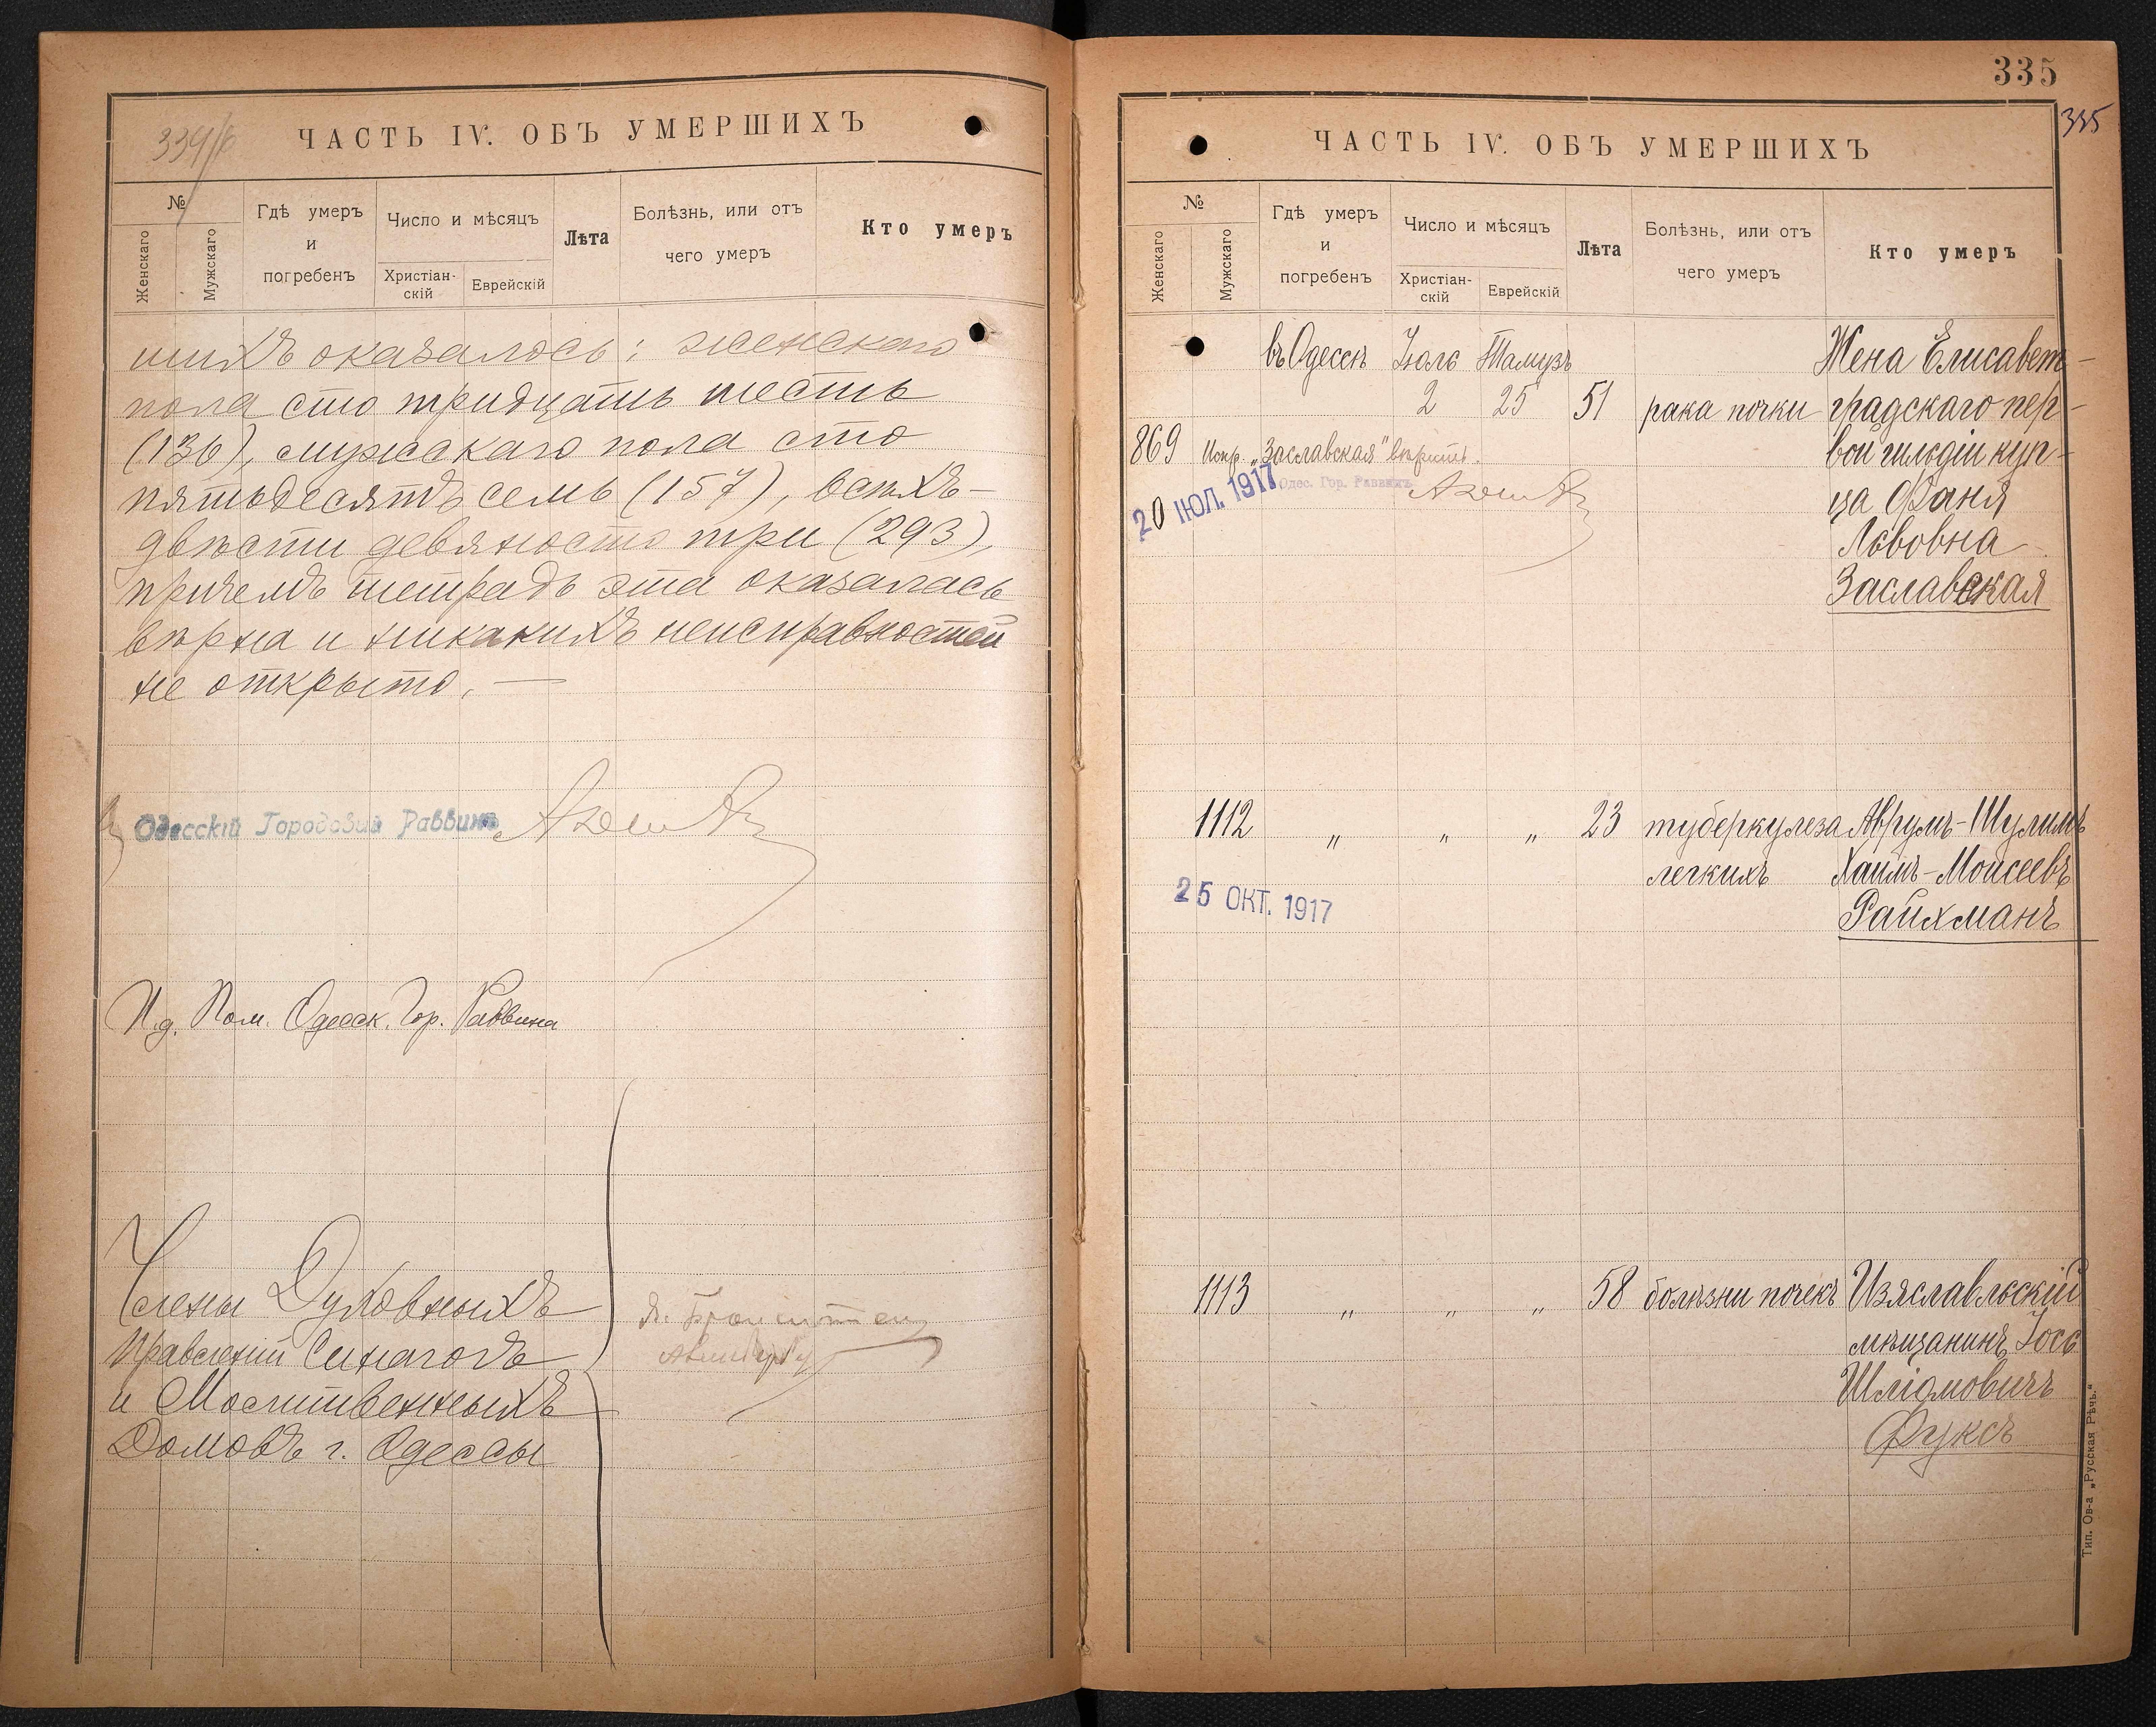 334/б
ЧАСТЬ IV. ОБЪ УМЕРШИХЪ
№
Женскаго
Мужскаго
Гдѣ умеръ и погребенъ
Число и мѣсяцъ
Христіан-скій
Еврейскій
Лѣта
Болѣзнь, или отъ чего умеръ
Кто умеръ
шихъ оказалось: женскаго
пола сто тридцать шесть
(136), мужскаго пола сто
пятьдесятъ семь (157), всѣхъ -
двѣсти девяносто три (293),
причемъ тетрадь эта оказалась
вѣрна и никакихъ неисправностей
не открыто. —
Одесскій Городовой Раввинъ
И.д. Пом. Одесск. Гор. Раввина
Члены Духовныхъ
Правленій Синагогъ
и Молитвенныхъ
Домовъ г. Одессы
335
335
ЧАСТЬ IV. ОБЪ УМЕРШИХЪ
№
Женскаго
Мужскаго
Гдѣ умеръ и погребенъ
Число и мѣсяцъ
Христіан-скій
Еврейскій
Лѣта
Болѣзнь, или отъ чего умеръ
Кто умеръ
въ Одессѣ Іюль Тамузъ Жена Елисавет-
2 25 51 рака почки градскаго пер-
869 Испр. „Заславская" вѣрить. вой гильдіи куп-
Одес. Гор. Раввинъ
20 ІЮЛ. 1917
ца Фаня
Львовна
Заславская
1112 „ „ „ 23 туберкулеза Аврумъ-Шулимъ
легкихъ Хаимъ-Моисеевъ
25 ОКТ. 1917
Райхманъ
1113 „ „ „ 58 болѣзни почекъ Изяславльскій
мѣщанинъ Іось
Шліомовичъ
Фуксъ
Тип. Ов-а „Русская Рѣчь."